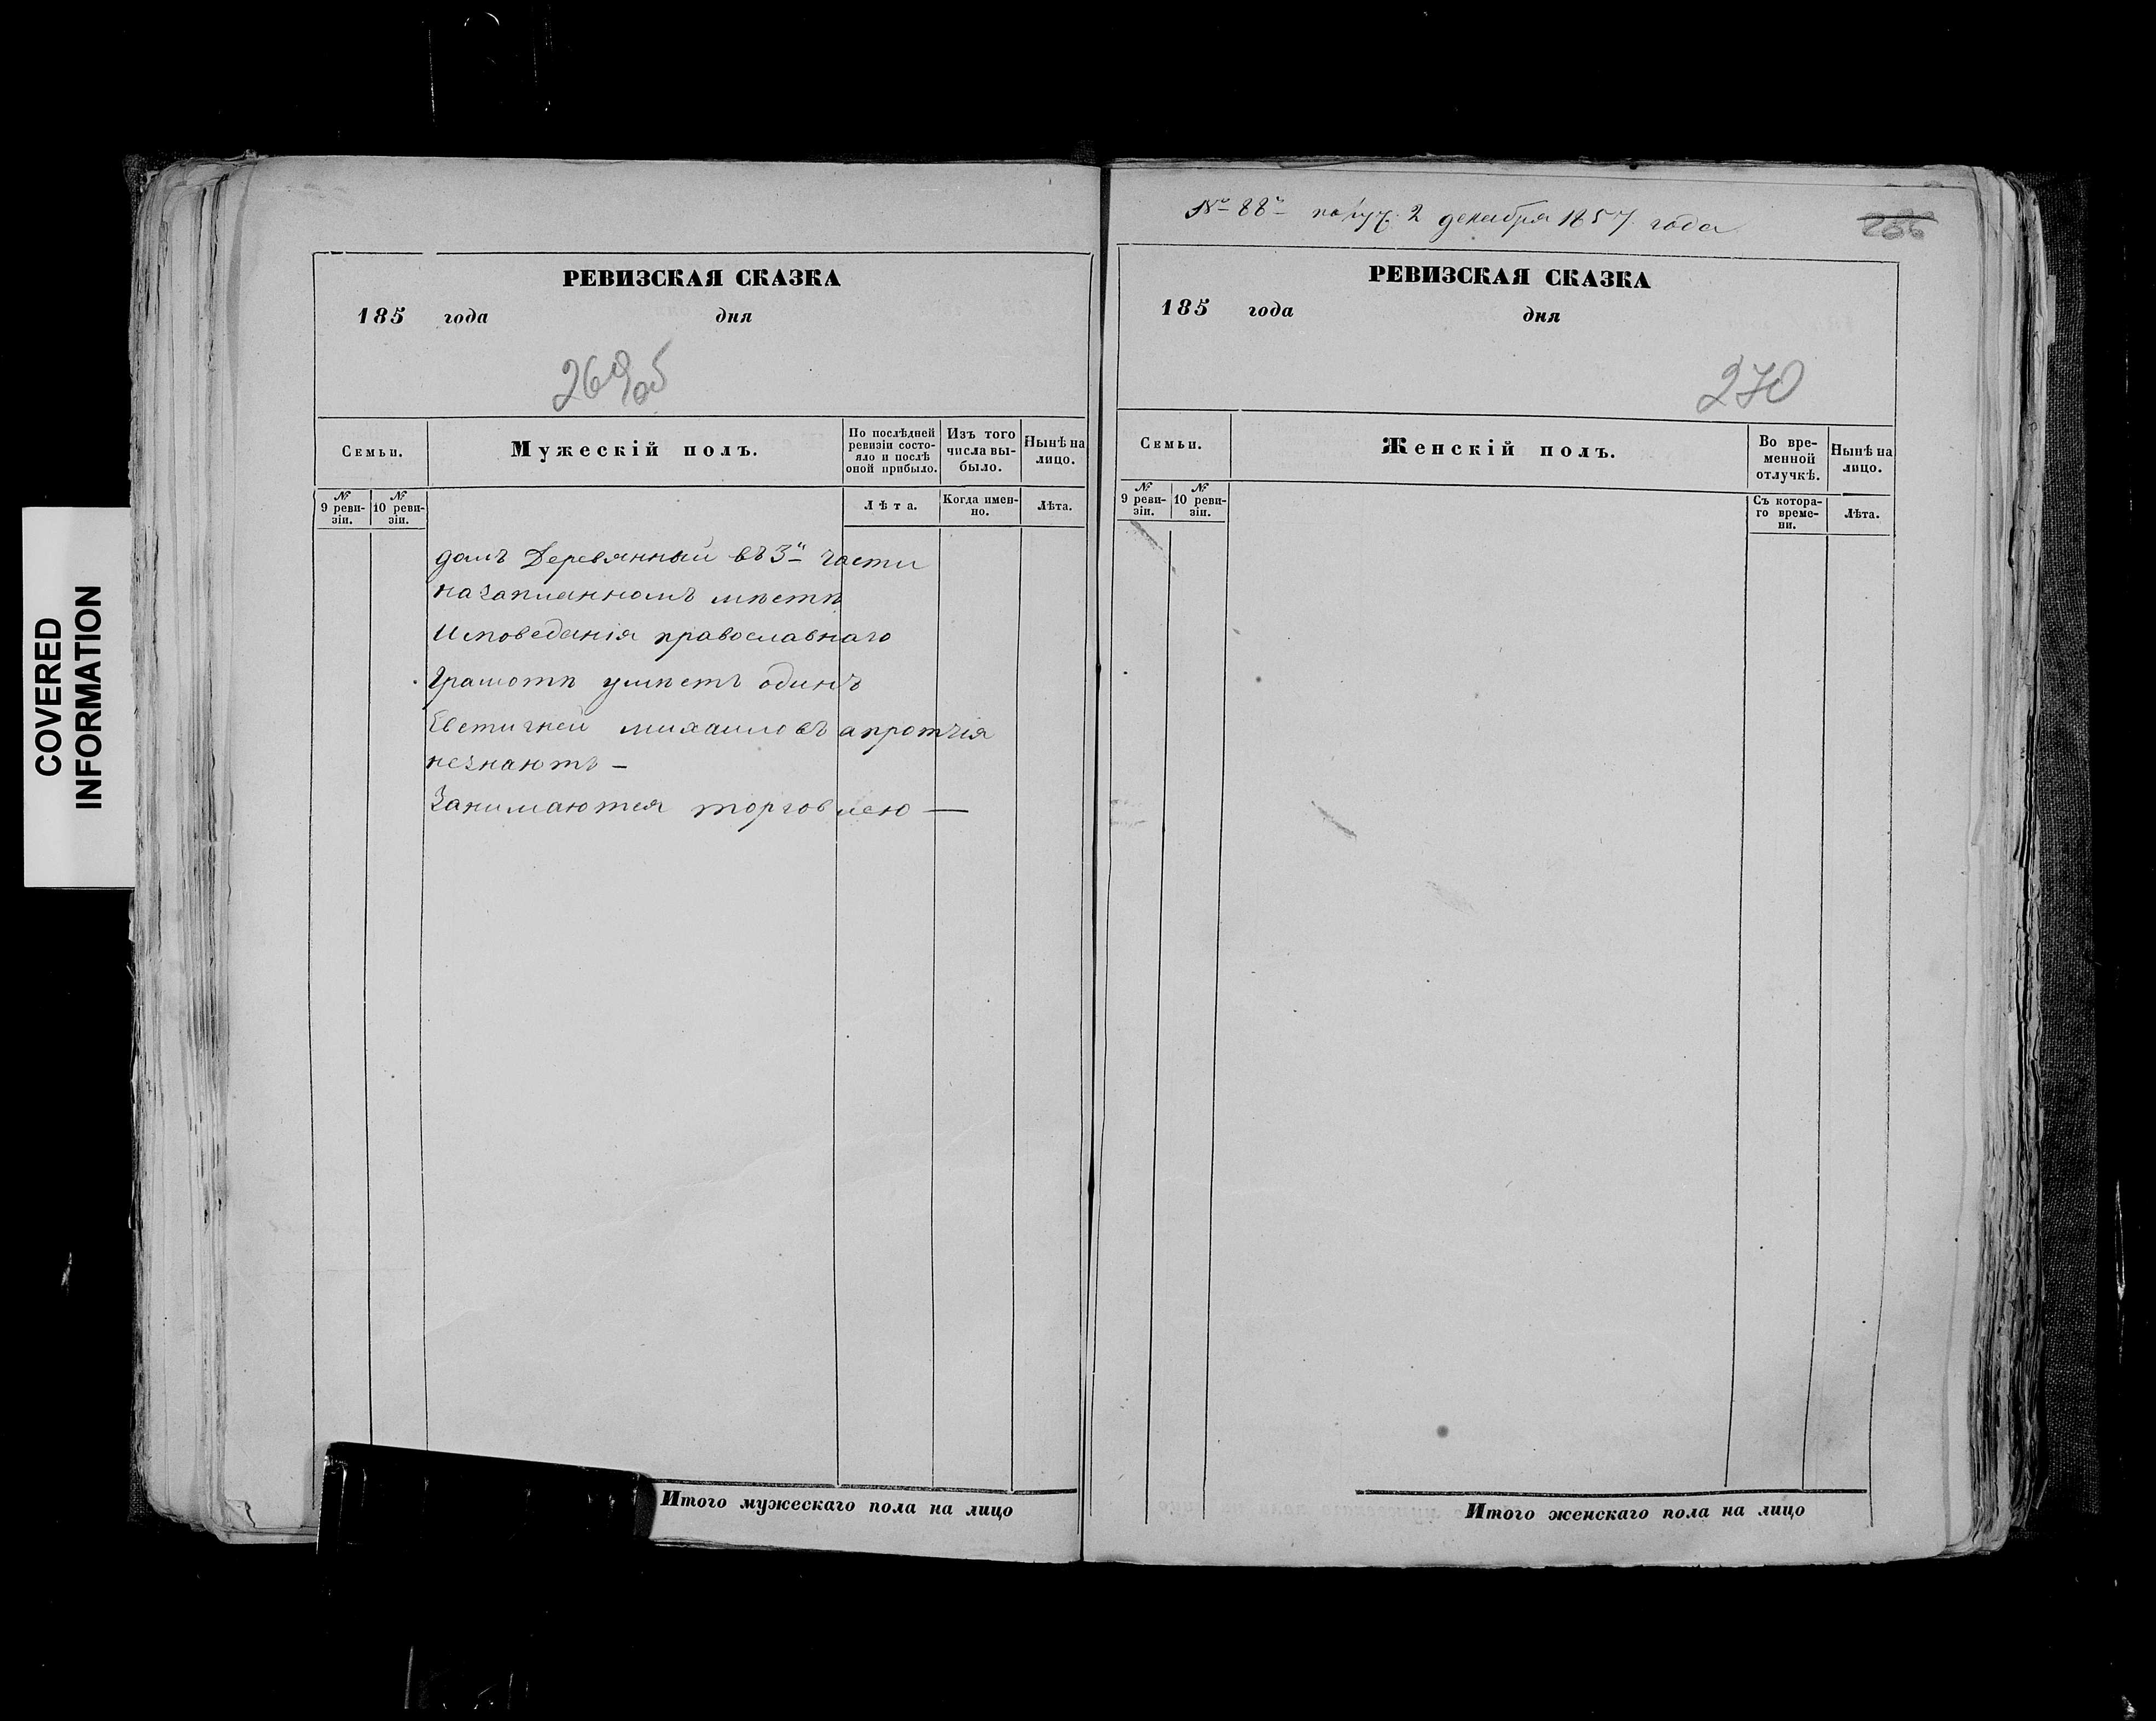 COVERED
INFORMATION
РЕВИЗСКАЯ СКАЗКА
185 года дня
269об
Семьи.
Мужескій полъ.
По послѣдней ревизіи состо-
яло и послѣ оной прибыло.
Изъ того числа вы-
было.
Нынѣ на лицо.
№ 9 реви-
зіи.
№ 10 реви-
зіи.
Лѣта.
Когда имен-
но.
Лѣта.
домъ Деревянный въ 3й части
на мѣстѣ
Исповеданія православнаго
Грамотѣ умѣетъ одинъ
Евстигней михаиловъ а протчія
незнаютъ –
Занимаются торговлею —
Итого мужескаго пола на лицо
№ 88й получ. 2 декабря 1857 года
РЕВИЗСКАЯ СКАЗКА
185 года дня
270
Семьи.
Женскій полъ.
Во вре-
менной
отлучкѣ.
Нынѣ на
лицо.
№ 9 реви-
зіи.
№ 10 реви-
зіи.
Съ котора-
го време-
ни.
Лѣта.
Итого женскаго пола на лицо